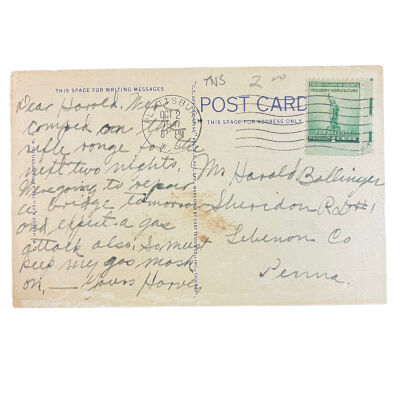 TNS 2 00
THIS SPACE FOR WRITING MESSAGES
POST CARD
THIS SPACE FOR ADDRESS ONLY
PLATTSBURG
OCT 2
INDUSTRY-AGRICULTURE
FOR DEFENSE
Dear Harold, Were
camped on the
rifle range for the
next two nights.
Were going to repair
a bridge tomorrow
and expect a gas
attack also. So must
keep my gas mask
on, — Yours Harvey
Mr Harold Bollinger
Sheridon R.D#1
Lebenon Co
Penna.